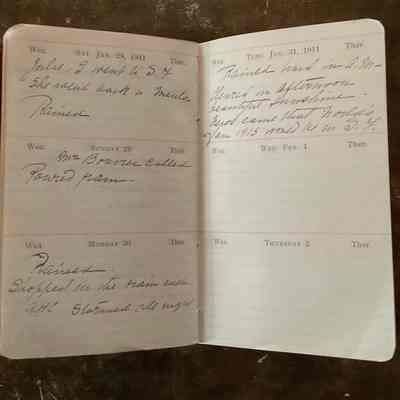 Wea. Sat. Jan. 28, 1911 Ther.
I went to S.F.
She went back to Menlo
Rained
Wea. Sunday 29 Ther.
Mr called
Poured rain
Wea. Monday 30 Ther.
Rained
Shopped in the rain
Stormed all night
Wea. Tues. Jan. 31, 1911 Ther.
Rained hard in A.M.
Cleared in afternoon
beautiful sunshine.
Word came that World's
Fair 1915 would be in S.F.
Wea. Wed. Feb. 1 Ther.
Wea. Thursday 2 Ther.